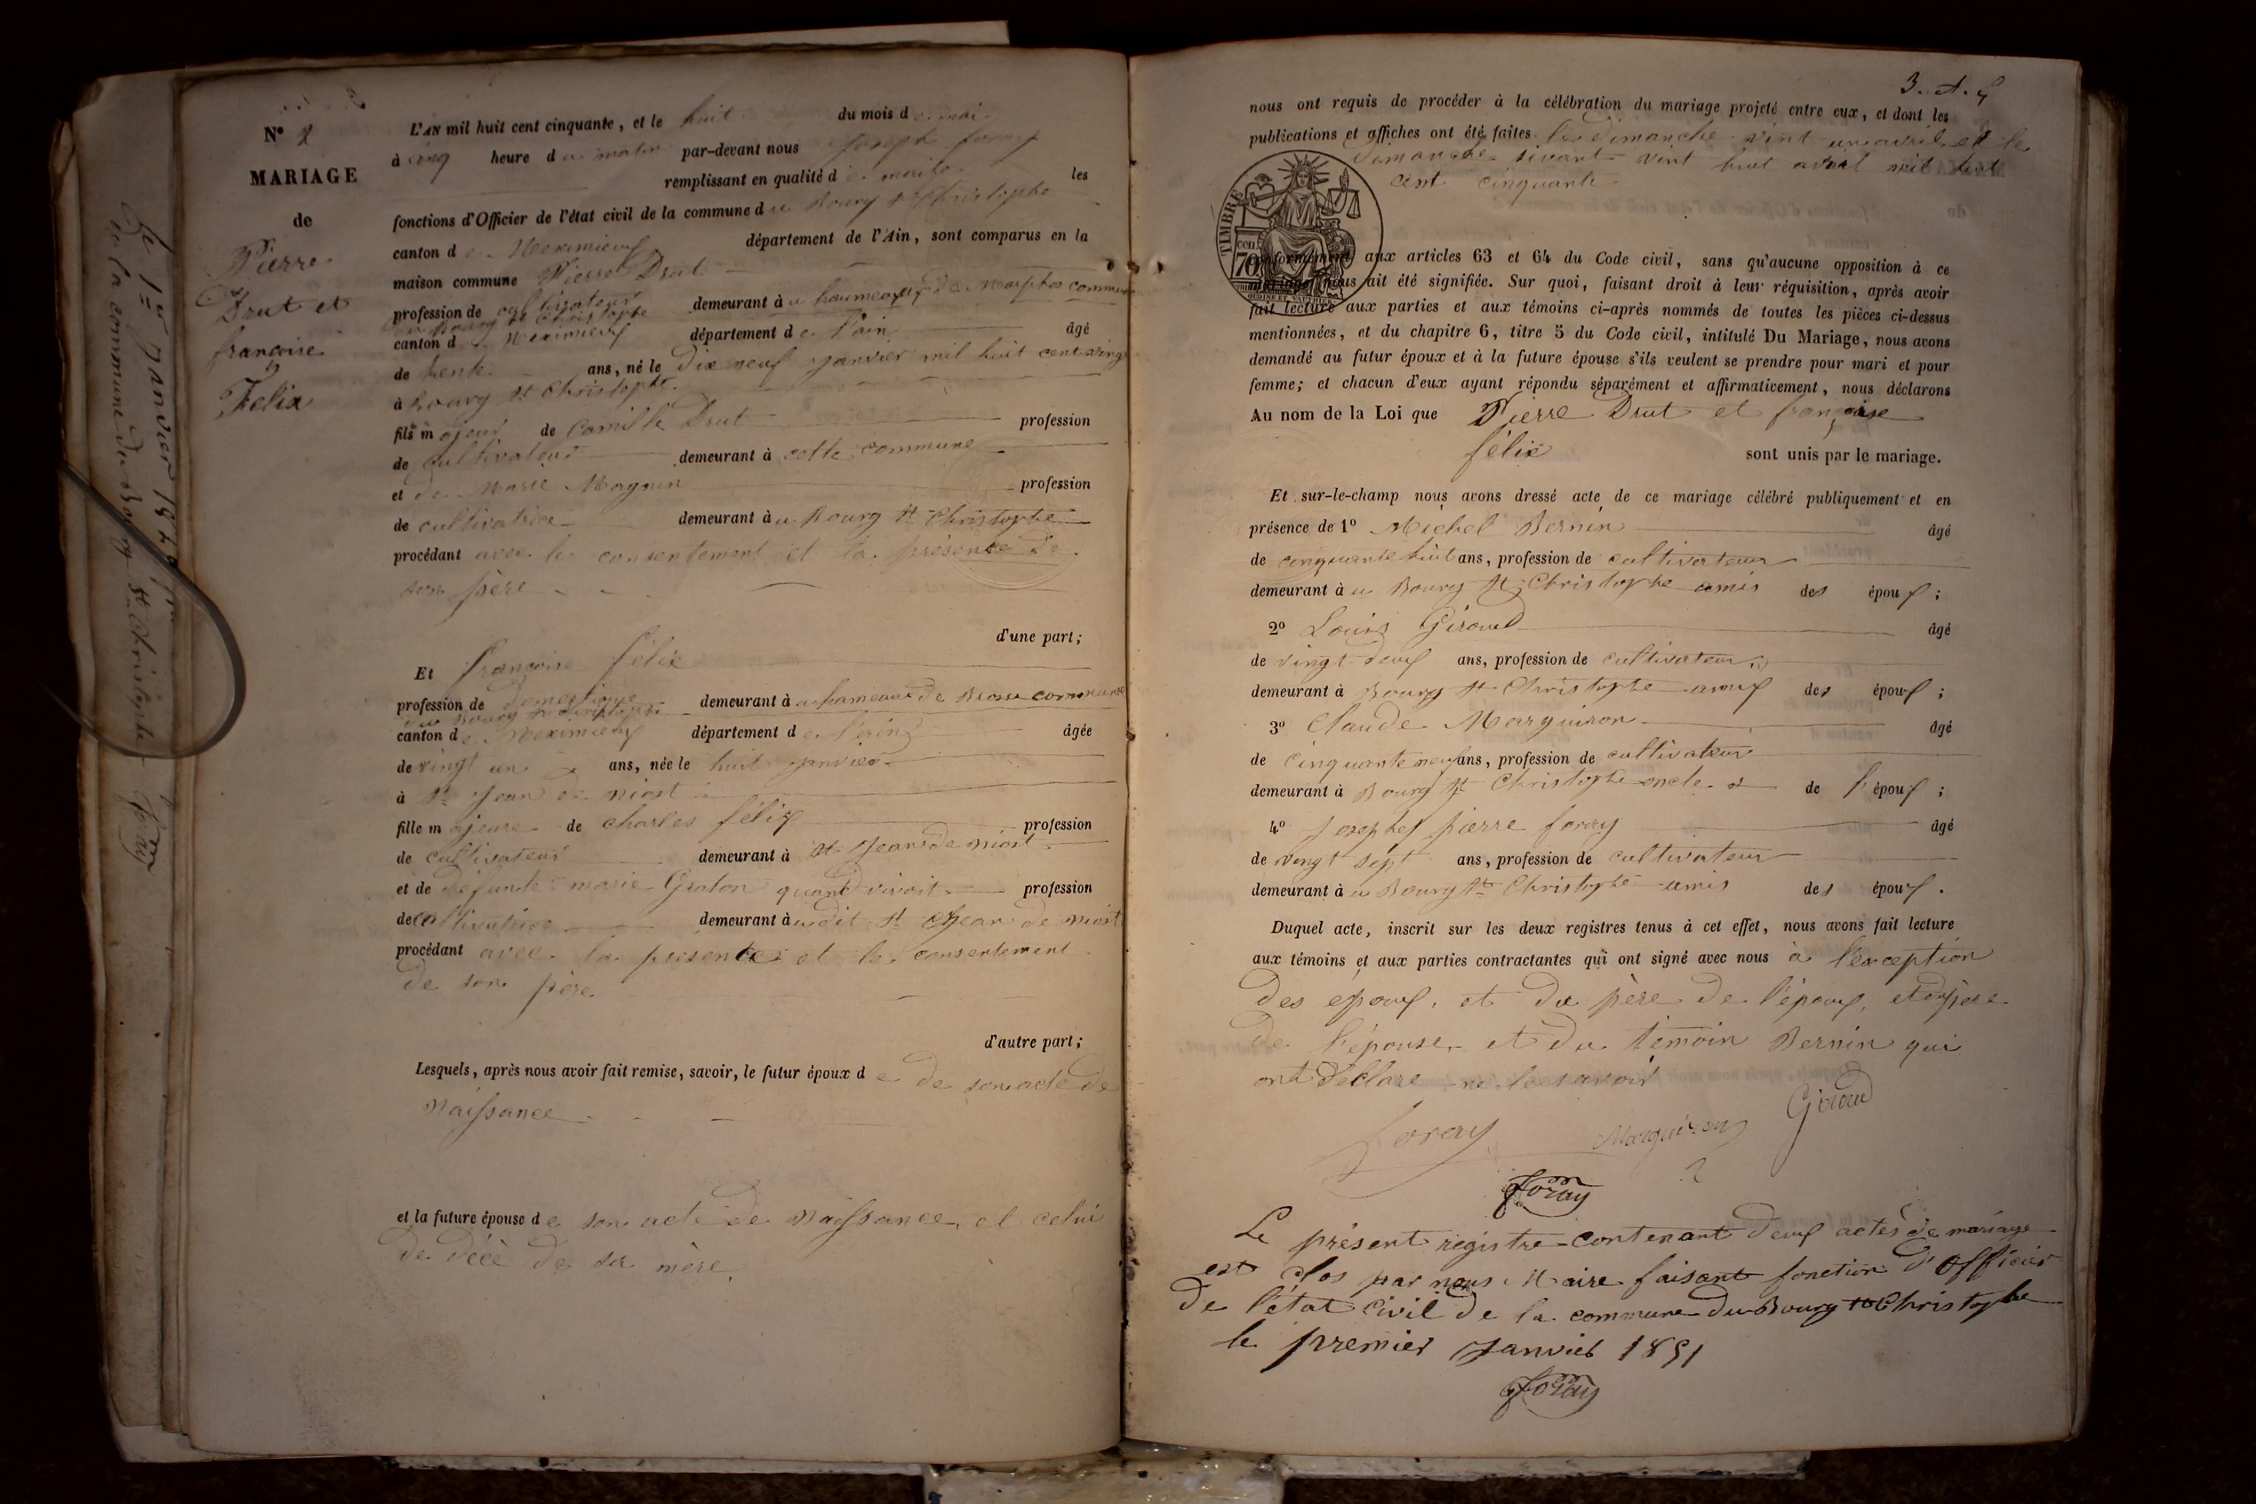 N° 2
MARIAGE
de
Pierre
Drut et
françoise
Félix
L'AN mil huit cent cinquante, et le huit du mois de mai
à cinq heure du matin par-devant nous Joseph foray
remplissant en qualité de maire les
fonctions d'Officier de l'état civil de la commune du Bourg St Christophe
canton de Meximieux département de l'Ain, sont comparus en la
maison commune Pierre Drut
profession de cultivateur demeurant à u hameaux de commune
du Bourg St Christophe
canton de Meximieux département de l'ain âgé
de trente ans, né le dix neuf janvier mil huit cent vingt
à Bourg St Christophe
fils majeur de Camille Drut profession
de cultivateur demeurant à cette commune
et de Marie Magnin profession
de cultivatrice demeurant à u Bourg St Christophe
procédant avec le consentement et la présence de
son père
d'une part;
Et françoise félix
profession de domestique demeurant à u hameaux de commune
du Bourg St Christophe
canton de Meximieux département de l'ain âgée
de vingt un ans, née le huit janvier
à St Jean de niost
fille majeure de charles félix profession
de cultivateur demeurant à St Jean de niost
et de défunte marie Graton quand vivait profession
de cultivatrice demeurant à u dit St Jean de niost
procédant avec la présence et le consentement
de son père
d'autre part;
Lesquels, après nous avoir fait remise, savoir, le futur époux d e de son acte de
Naissance
et la future épouse de son acte de Naissance, et celui
de décè de sa mère.
Le 1er janvier 184
de la commune du Bourg St Christophe
foray
nous ont requis de procéder à la célébration du mariage projeté entre eux, et dont les
publications et affiches ont été faites le dimanche vint un avril et le
dimanche sivant vint huit avril mil huit
cent cinquante
TIMBRE
70
Conformément aux articles 63 et 64 du Code civil, sans qu'aucune opposition à ce
mariage nous ait été signifiée. Sur quoi, faisant droit à leur réquisition, après avoir
fait lecture aux parties et aux témoins ci-après nommés de toutes les pièces ci-dessus
mentionnées, et du chapitre 6, titre 5 du Code civil, intitulé Du Mariage, nous avons
demandé au futur époux et à la future épouse s'ils veulent se prendre pour mari et pour
femme; et chacun d'eux ayant répondu séparément et affirmativement, nous déclarons
Au nom de la Loi que Pierre Drut et françoise
félix sont unis par le mariage.
Et sur-le-champ nous avons dressé acte de ce mariage célébré publiquement et en
présence de 1° Michel Bernin âgé
de cinquante huit ans, profession de cultivateur
demeurant à u Bourg St Christophe amis des époux;
2° Louis Giroud âgé
de vingt neuf ans, profession de cultivateur
demeurant à Bourg St Christophe amis des époux;
3° Claude Marguiron âgé
de cinquante neuf ans, profession de cultivateur
demeurant à Bourg St Christophe oncle de l'époux;
4° Josephes pierre foray âgé
de vingt sept ans, profession de cultivateur
demeurant à u Bourg St Christophe amis des époux.
Duquel acte, inscrit sur les deux registres tenus à cet effet, nous avons fait lecture
aux témoins et aux parties contractantes qui ont signé avec nous à l'exception
des epoux, et du père de l'époux, et du père
de l'épouse et du témoin Bernin qui
ont déclaré ne le savoir
foray Marguiron Giroud
foray
Le présent registre contenant deux actes de mariage
est clos par nous Maire faisant fonction d'officier
de l'état civil de la commune du Bourg St Christophe
le premier Janvier 1851
foray